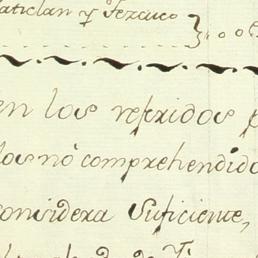 atitlan y Tezcuco
en los referidos
los no comprehendido
considera suficiente,